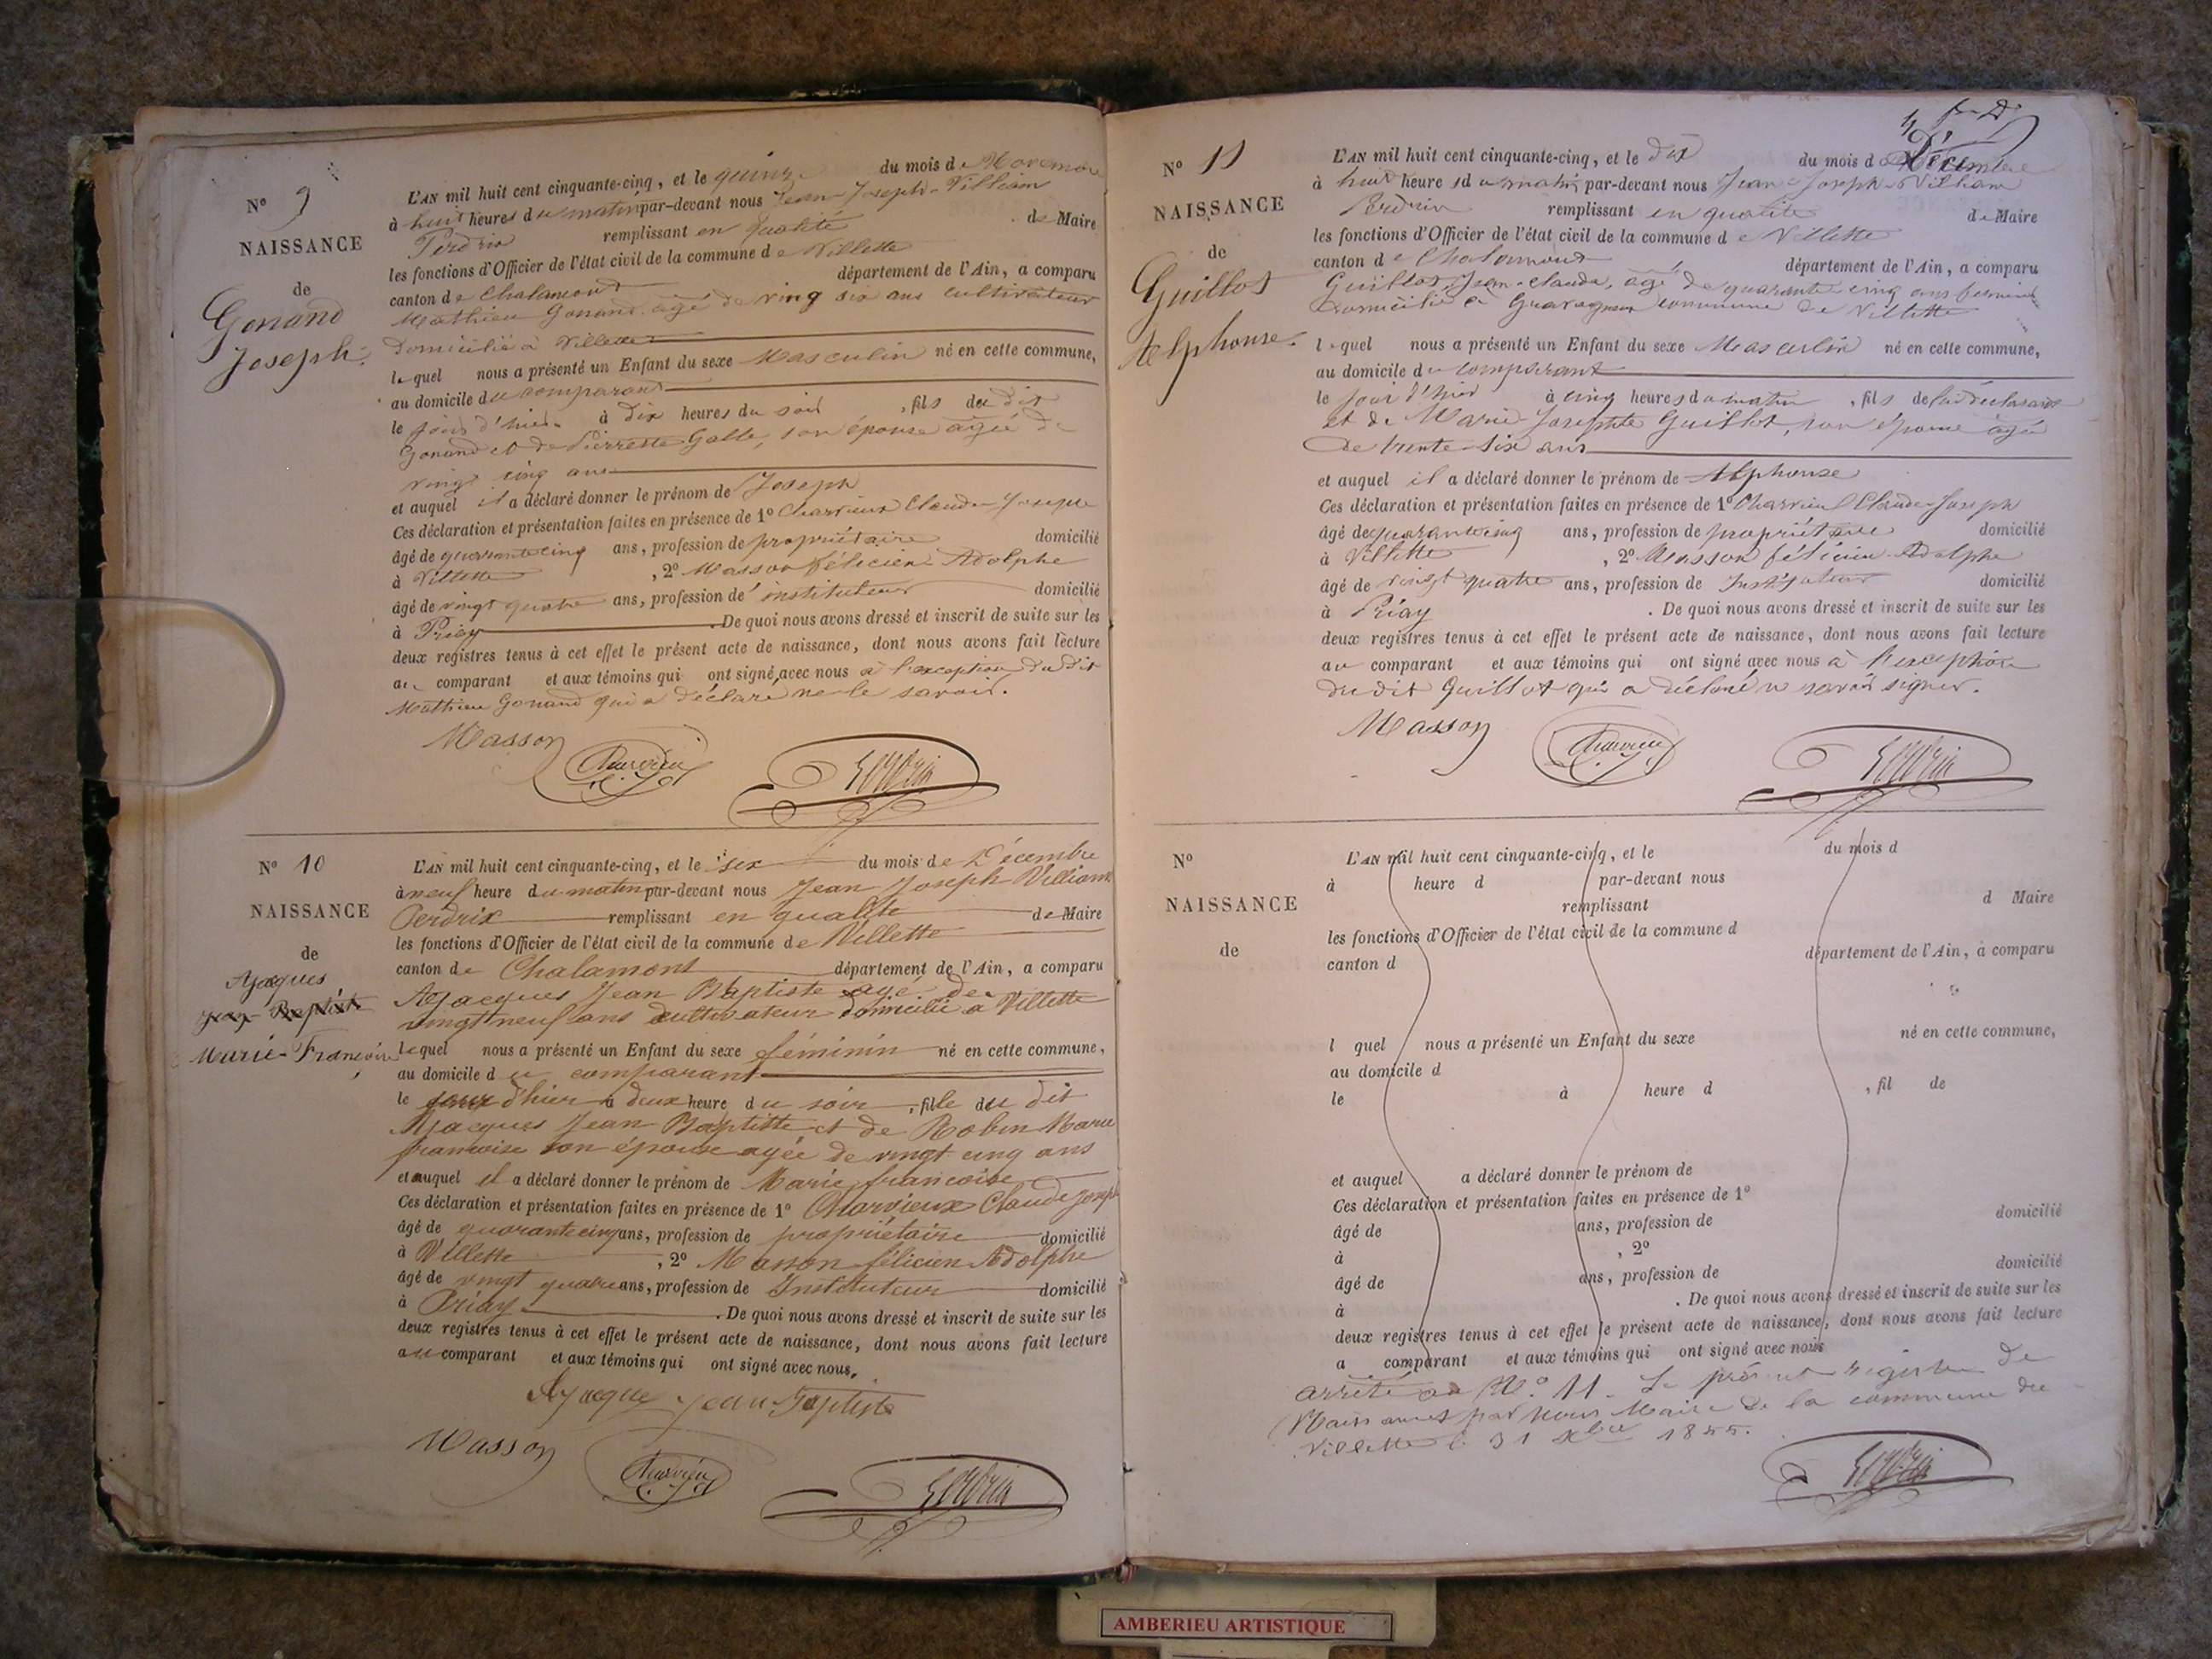 N° 9
NAISSANCE
de
Gonand
Joseph.
L'AN mil huit cent cinquante-cinq, et le quinze du mois de Novembre
à huit heures du matin par-devant nous Jean-Joseph-Villiam
Perdrix remplissant en qualité de Maire
les fonctions d'Officier de l'état civil de la commune de Villette
canton de Chalamont département de l'Ain, a comparu
Mathieu Gonand agé de ving six ans cultivateur
domicilié à Villette
lequel nous a présenté un Enfant du sexe Masculin né en cette commune,
au domicile du comparant
le jour d'hier à dix heures du soir, fils du dit
Gonand et de Pierrette Galle, son épouse agée de
vingt cinq ans
et auquel il a déclaré donner le prénom de Joseph
Ces déclaration et présentation faites en présence de 1° Charvieux Claude-Joseph
âgé de quarante cinq ans, profession de propriétaire domicilié
à Villette, 2° Masson félicien Adolphe
âgé de vingt quatre ans, profession de instituteur domicilié
à Priay. De quoi nous avons dressé et inscrit de suite sur les
deux registres tenus à cet effet le présent acte de naissance, dont nous avons fait lecture
au comparant et aux témoins qui ont signé avec nous à l'exception du dit
Mathieu Gonand qui a déclaré ne le savoir.
Masson Charvieu C. J. Perdrix
N° 10
NAISSANCE
de
Ajacques
Jean-Baptiste
Marie-Francoise
L'AN mil huit cent cinquante-cinq, et le six du mois de Décembre
à neuf heure du matin par-devant nous Jean Joseph Villiam
Perdrix remplissant en qualité de Maire
les fonctions d'Officier de l'état civil de la commune de Villette
canton de Chalamont département de l'Ain, a comparu
Ajacques Jean Baptiste agé de
vingt neuf ans cultivateur domicilié à Villette
lequel nous a présenté un Enfant du sexe féminin né en cette commune,
au domicile du comparant
le jour d'hier à deux heure du soir, fille du dit
Ajacques Jean Baptiste et de Robin Marie
francoise son épouse agée de vingt cinq ans
et auquel il a déclaré donner le prénom de Marie francoise
Ces déclaration et présentation faites en présence de 1° Charvieux Claude Joseph
âgé de quarante cinq ans, profession de propriétaire domicilié
à Villette, 2° Masson félicien Adolphe
âgé de vingt quatre ans, profession de Instituteur domicilié
à Priay. De quoi nous avons dressé et inscrit de suite sur les
deux registres tenus à cet effet le présent acte de naissance, dont nous avons fait lecture
au comparant et aux témoins qui ont signé avec nous.
Ajacque Jean Baptiste
Masson Charvieu C. J. Perdrix
N° 11
NAISSANCE
de
Guillot
Alphonse.
L'AN mil huit cent cinquante-cinq, et le dix du mois de Décembre
à huit heure du matin par-devant nous Jean-Joseph-Villiam
Perdrix remplissant en qualité de Maire
les fonctions d'Officier de l'état civil de la commune de Villette
canton de Chalamont département de l'Ain, a comparu
Guillot, Jean-Claude, agé de quarante cinq ans fermier
domicilié à commune de Villette
lequel nous a présenté un Enfant du sexe Masculin né en cette commune,
au domicile du comparant
le jour d'hier à cinq heures du matin, fils de lui déclarant
et de Marie Josephte Guillot, son épouse agée
de trente six ans
et auquel il a déclaré donner le prénom de Alphonse
Ces déclaration et présentation faites en présence de 1° Charvieux Claude-Joseph
âgé de quarante cinq ans, profession de propriétaire domicilié
à Villette, 2° Masson félicien Adolphe
âgé de vingt quatre ans, profession de Instituteur domicilié
à Priay. De quoi nous avons dressé et inscrit de suite sur les
deux registres tenus à cet effet le présent acte de naissance, dont nous avons fait lecture
au comparant et aux témoins qui ont signé avec nous à l'exception
du dit Guillot qui a déclaré ne savoir signer.
Masson Charvieu C. J. Perdrix
N°
NAISSANCE
de
L'AN mil huit cent cinquante-cinq, et le du mois d
à heure d par-devant nous
remplissant d Maire
les fonctions d'Officier de l'état civil de la commune d
canton d département de l'Ain, a comparu
l quel nous a présenté un Enfant du sexe né en cette commune,
au domicile d
le à heure d , fil de
et auquel a déclaré donner le prénom de
Ces déclaration et présentation faites en présence de 1°
âgé de ans, profession de domicilié
à , 2°
âgé de ans, profession de domicilié
à . De quoi nous avons dressé et inscrit de suite sur les
deux registres tenus à cet effet le présent acte de naissance, dont nous avons fait lecture
a comparant et aux témoins qui ont signé avec nous
arrêté au N° 11. Le présent registre de
Naissances par nous Maire de la commune de
Villette le 31 Xbre 1855.
Perdrix
AMBERIEU ARTISTIQUE